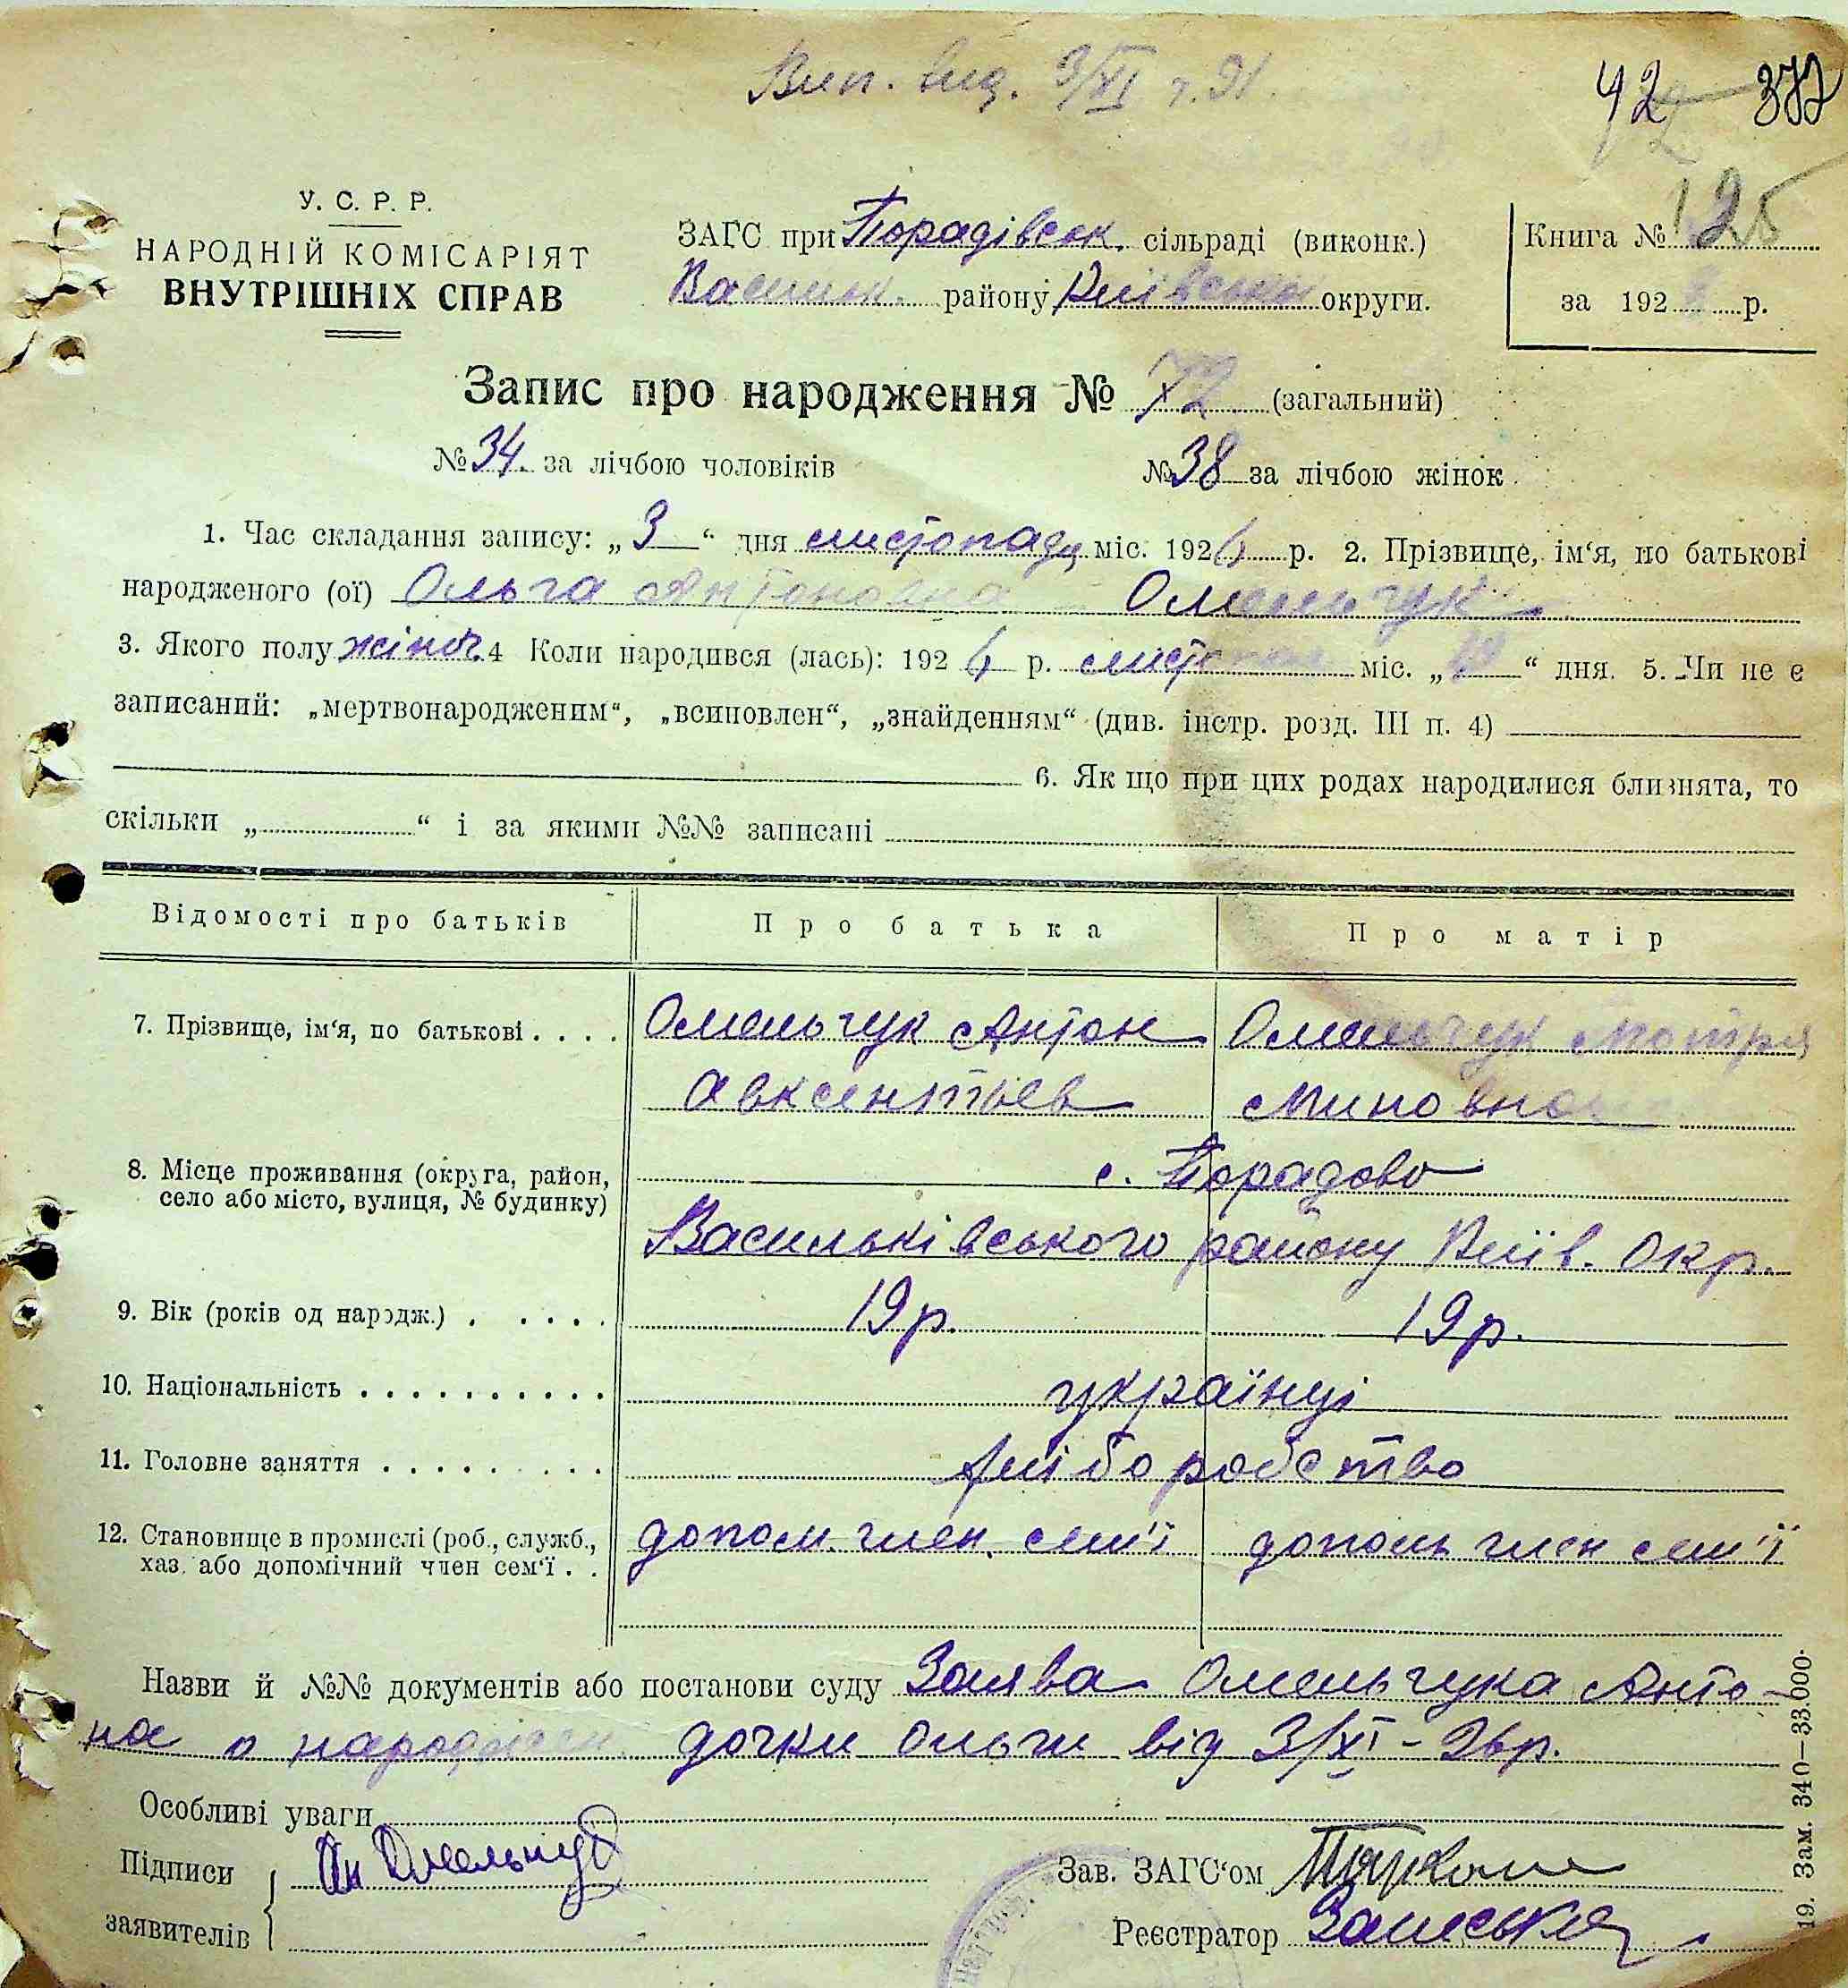 Вип. вид. 3/XI т.31.
42 372
125
У. С. Р. Р.
НАРОДНІЙ КОМІСАРІЯТ
ВНУТРІШНІХ СПРАВ
ЗАГС при Порадівськ. сільраді (виконк.)
Васильк. району Київської округи.
Книга №
за 192 р.
Запис про народження № 72 (загальний)
№ 34. за лічбою чоловіків № 38 за лічбою жінок
1. Час складання запису: „3“ дня листопаду міс. 1926 р. 2. Прізвище, ім‘я, по батькові
народженого (ої) Ольга Антоновна Омельчук
3. Якого полу жіноч. 4 Коли народився (лась): 1926 р. листопад міс. „ “ дня. 5. Чи не є
записаний: „мертвонародженим“, „всиновлен“, „знайденням“ (див. інстр. розд. III п. 4)
6. Як що при цих родах народилися близнята, то
скільки „ “ і за якими №№ записані
Відомості про батьків Про батька Про матір
7. Прізвище, ім‘я, по батькові . . . . Омельчук Антон Омельчук Мотря
Авксентьев Миновна
8. Місце проживання (округа, район,
село або місто, вулиця, № будинку)
с. Порадово
Васильківського району Київ. Окр.
9. Вік (років од народж.) . . . . . 19 р. 19 р.
10. Національність . . . . . . . . . . українці
11. Головне заняття . . . . . . . . хліборобство
12. Становище в промислі (роб., служб.,
хаз. або допомічний член сем‘ї . .
допом. член. сем'ї допомь член сем'ї
Назви й №№ документів або постанови суду Заява Омельчука Анто-
на о народжен. дочки Ольги від 3/XI - 26 р.
Особливі уваги
Підписи
заявителів
Ан Омельчук
Зав. ЗАГС‘ом
Реєстратор
19. Зам. 340—33.000.